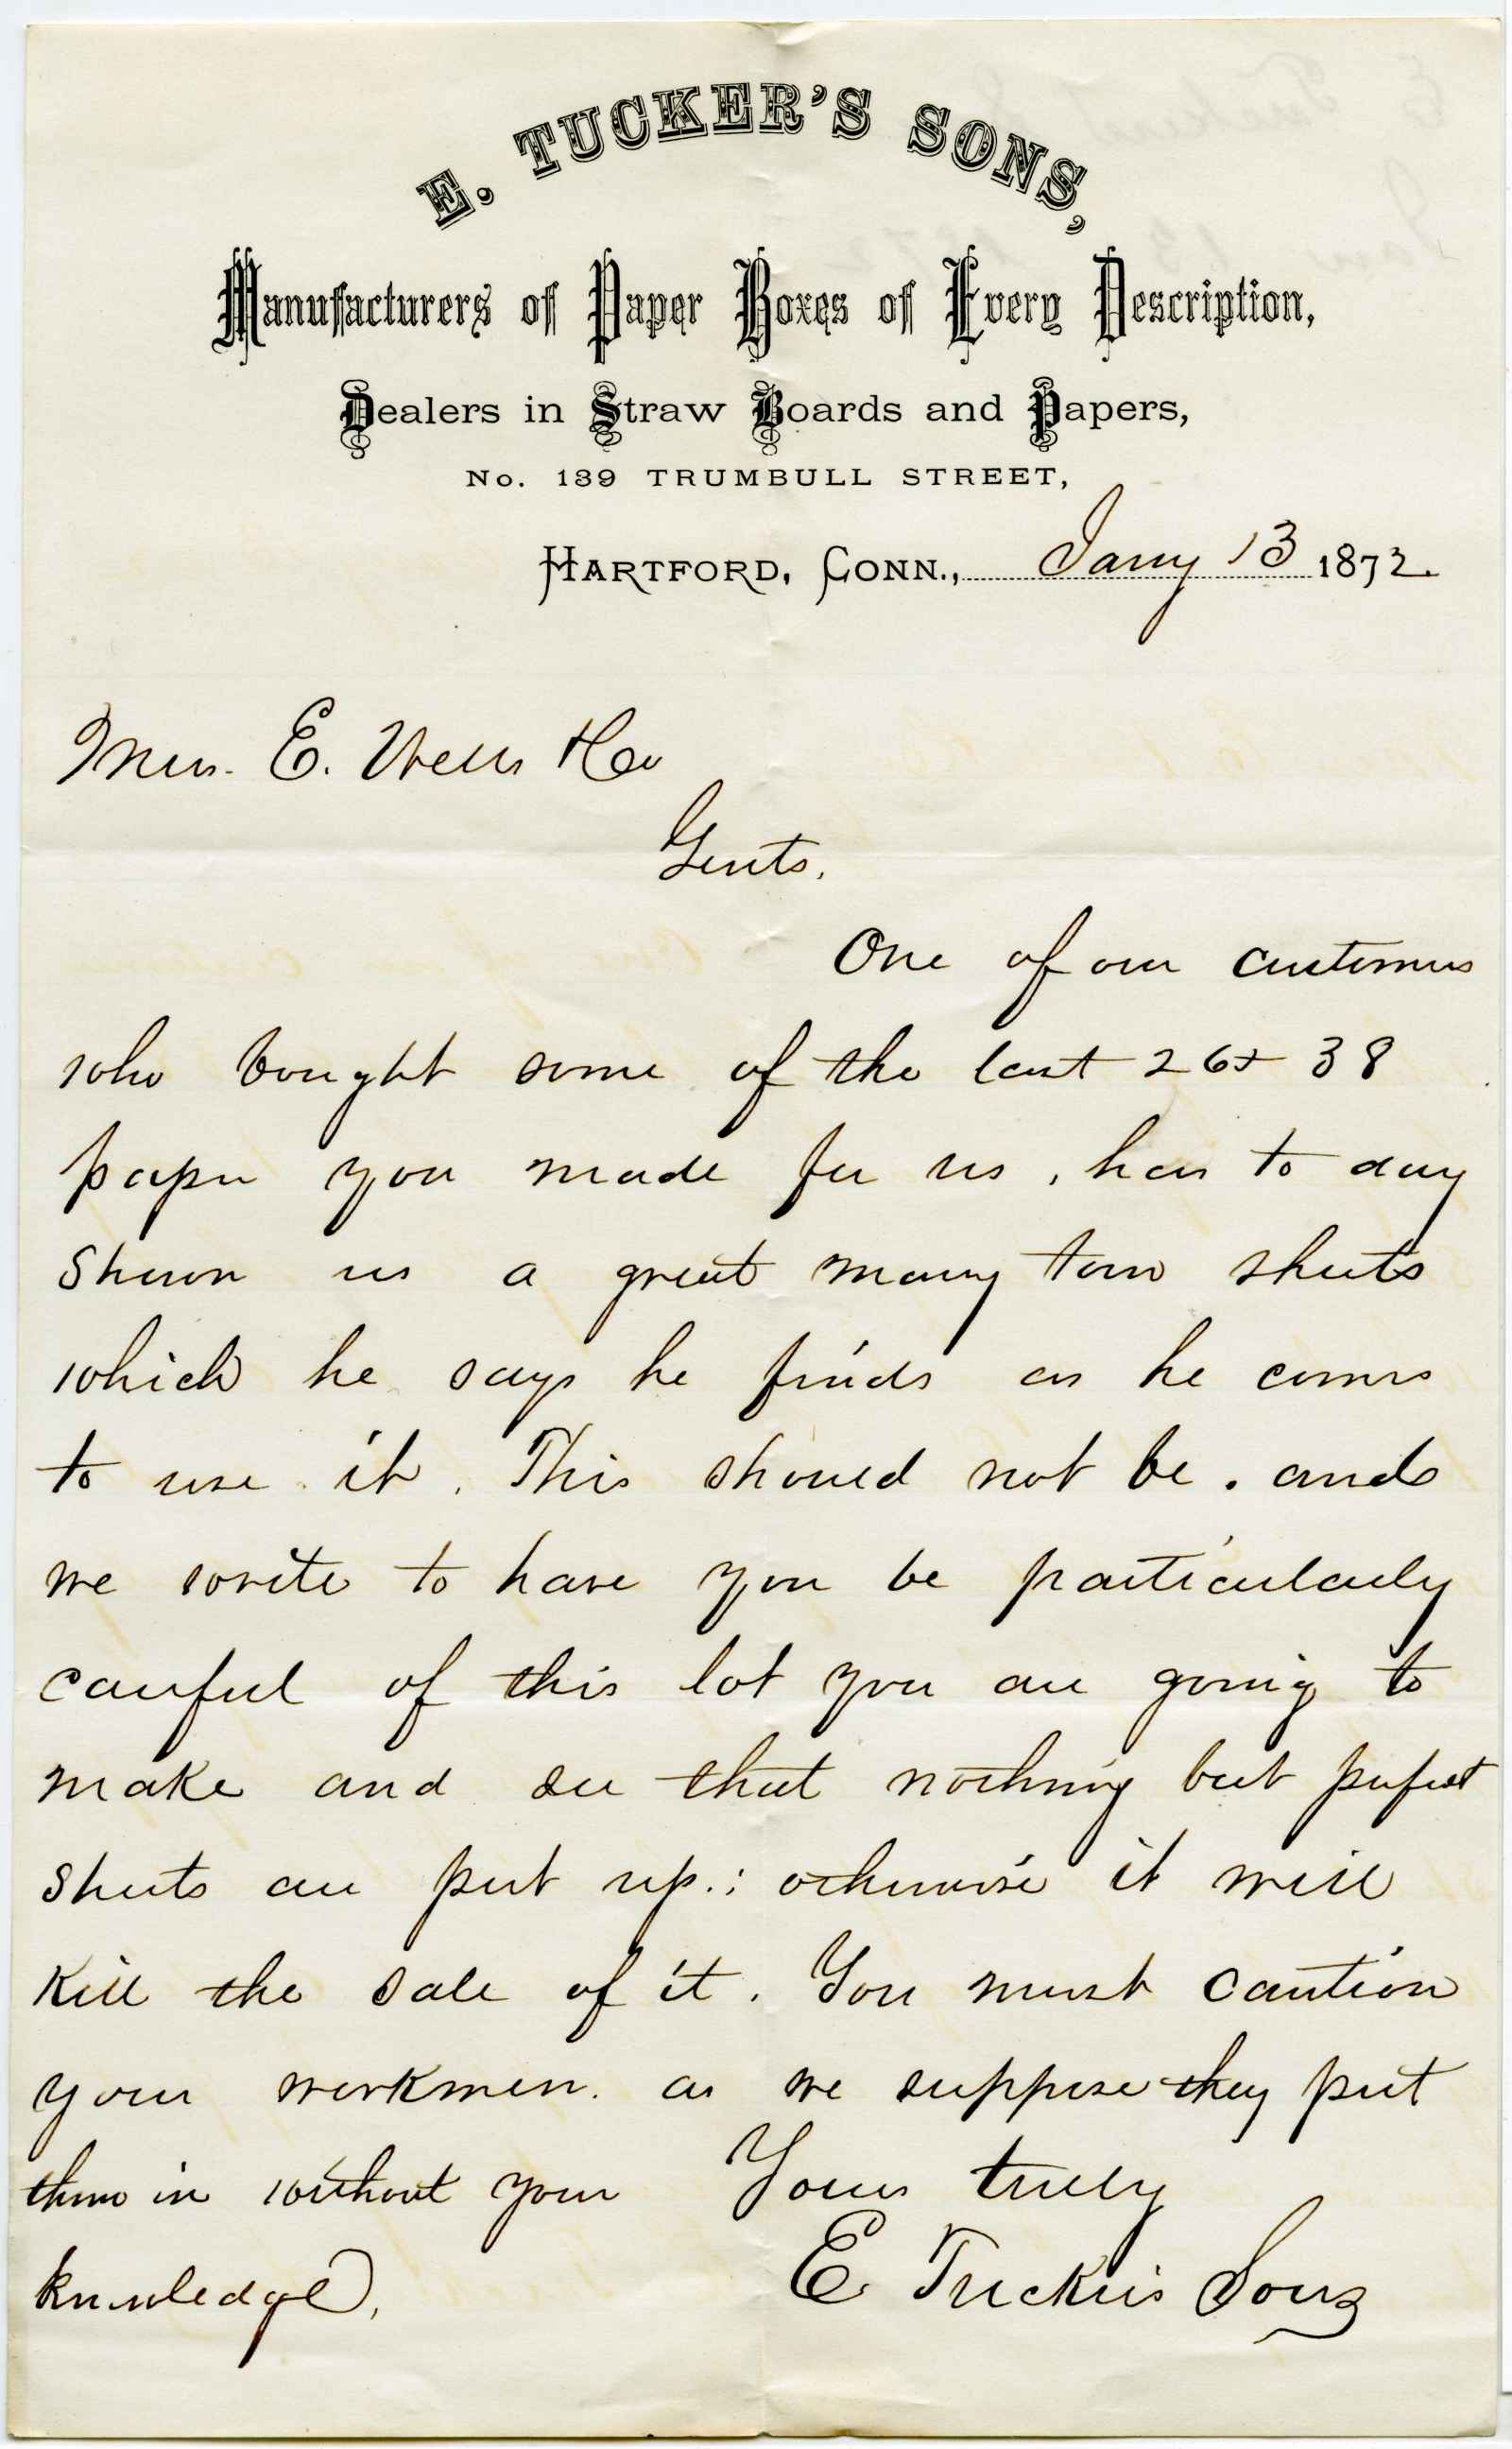 E. TUCKER'S SONS,
Manufacturers of Paper Boxes of Every Description,
Dealers in Straw Boards and Papers,
No. 139 TRUMBULL STREET,
HARTFORD, CONN., Jany 13 1872.
Mess. E. Wells & Co
Gents.
One of our customers
who bought some of the last 26 x 38
paper you made for us, has to day
shewn us a great many torn sheets
which he says he finds as he comes
to use it. This should not be. and
we write to have you be particularly
careful of this lot you are going to
make and see that nothing but perfect
sheets are put up.; otherwise it will
kill the sale of it. You must caution
your workmen. as we suppose they put
them in without your
knowledge,
Yours truly
E Tucker's Sons